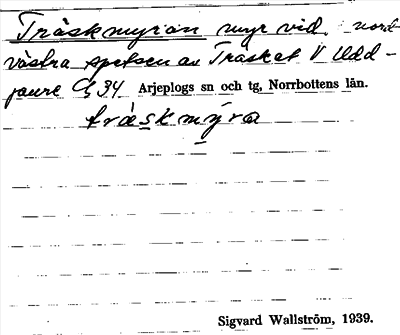 Träskmyran myr vid nord-
västra spetsen av Träsket V Udd-
jaure G 34 Arjeplogs sn och tg, Norrbottens län.
träskmyra
Sigvard Wallström, 1939.